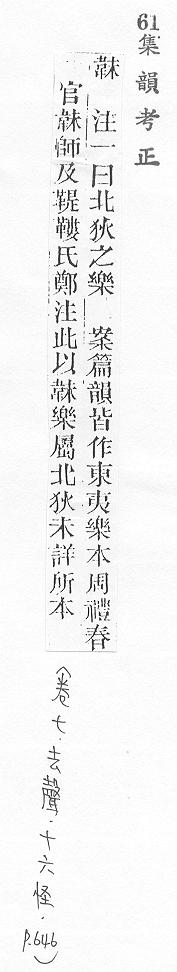 61集韻考正
韎　注一曰北狄之樂　案篇韻皆作東夷樂本周禮春
官韎師及鞮鞻氏鄭注此以韎樂屬北狄未詳所本
(卷七．去聲．十六怪．P.646)